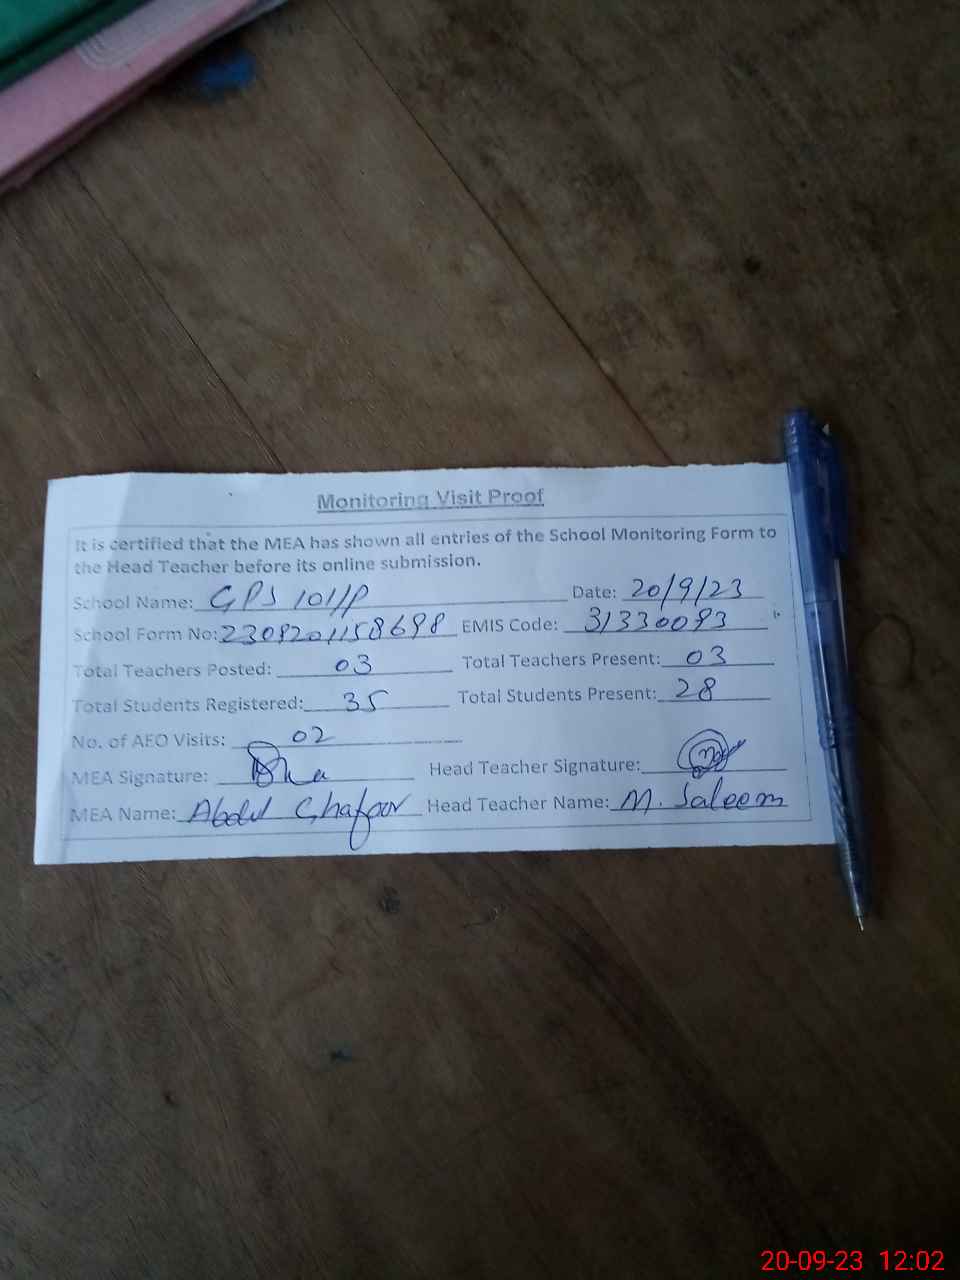 Monitoring Visit Proof
It is certified that the MEA has shown all entries of the School Monitoring Form to
the Head Teacher before its online submission.
School Name: GPS 101/P Date: 20/9/23
School Form No: 2309201158698 EMIS Code: 31330093
Total Teachers Posted: 03 Total Teachers Present: 03
Total Students Registered: 35 Total Students Present: 28
No. of AEO Visits: 02
MEA Signature: Head Teacher Signature:
MEA Name: Abdul Ghafoor Head Teacher Name: M. Saleem
20-09-23 12:02